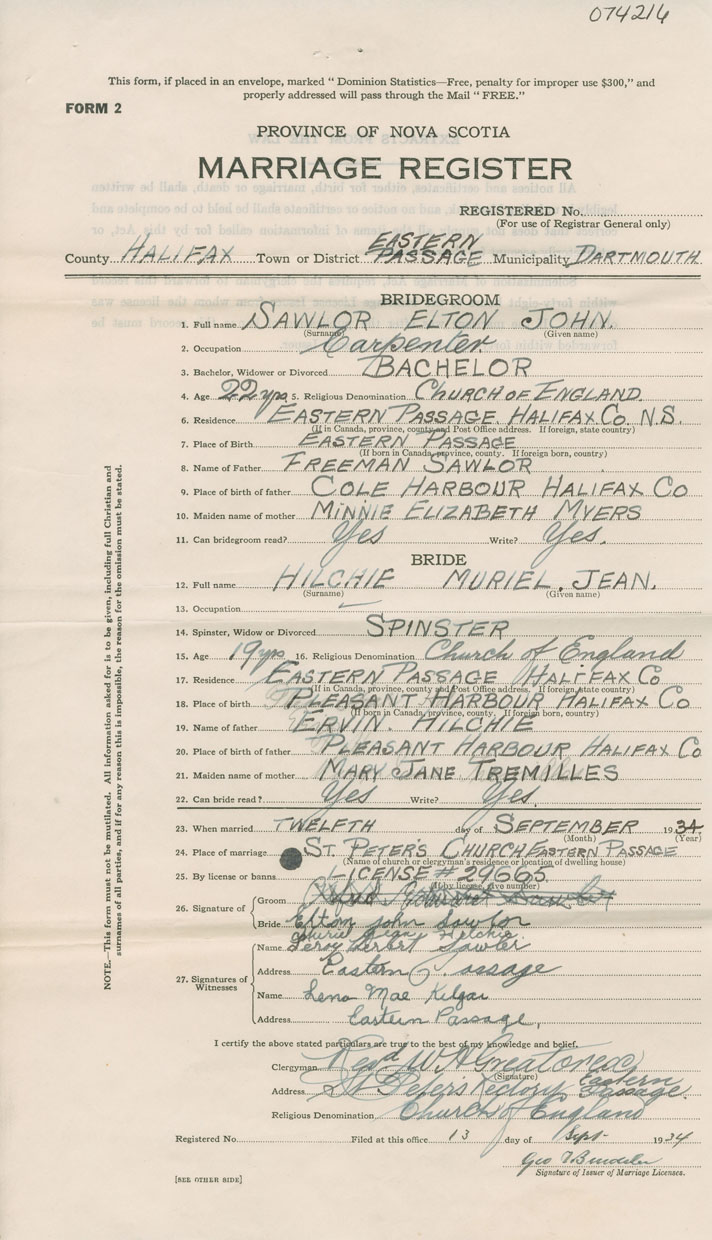 074216
This form, if placed in an envelope, marked " Dominion Statistics—Free, penalty for improper use $300," and
properly addressed will pass through the Mail " FREE."
FORM 2
PROVINCE OF NOVA SCOTIA
MARRIAGE REGISTER
REGISTERED No.
(For use of Registrar General only)
County HALIFAX Town or District EASTERN PASSAGE Municipality DARTMOUTH
BRIDEGROOM
1. Full name SAWLOR ELTON JOHN.
(Surname) (Given name)
2. Occupation Carpenter
3. Bachelor, Widower or Divorced BACHELOR
4. Age 22 yrs 5. Religious Denomination CHURCH OF ENGLAND
6. Residence EASTERN PASSAGE. HALIFAX.CO. N.S.
(If in Canada, province, county and Post Office address. If foreign, state country)
7. Place of Birth EASTERN PASSAGE
(If born in Canada, province, county. If foreign born, country)
8. Name of Father FREEMAN SAWLOR
9. Place of birth of father COLE HARBOUR HALIFAX CO
10. Maiden name of mother MINNIE ELIZABETH MYERS
11. Can bridegroom read? Yes Write? Yes.
BRIDE
12. Full name HILCHIE MURIEL. JEAN.
(Surname) (Given name)
13. Occupation
14. Spinster, Widow or Divorced SPINSTER
15. Age 19 yrs 16. Religious Denomination Church of England
17. Residence EASTERN PASSAGE HALIFAX CO
(If in Canada, province, county and Post Office address. If foreign, state country)
18. Place of birth PLEASANT HARBOUR HALIFAX CO
(If born in Canada, province, county. If foreign born, country)
19. Name of father ERVIN. HILCHIE
20. Place of birth of father PLEASANT HARBOUR HALIFAX CO
21. Maiden name of mother MARY JANE TREMILLES
22. Can bride read? Yes Write? Yes.
23. When married TWELFTH day of SEPTEMBER 1934
(Month) (Year)
24. Place of marriage ST. PETER'S CHURCH EASTERN PASSAGE
(Name of church or clergyman's residence or location of dwelling house)
25. By license or banns LICENSE # 29665
(If by license, give number)
26. Signature of Groom
Bride Elton John Sawlor
Muriel Jean Hilchie
27. Signatures of Witnesses
Name Leroy Herbert Sawler
Address Eastern Passage
Name Lena Mae Kilgar
Address Eastern Passage,
I certify the above stated particulars are true to the best of my knowledge and belief.
Clergyman Revd W H Greatorex
(Signature)
Address St Peters Rectory Eastern Passage
Religious Denomination Church of England
Registered No. Filed at this office 13 day of Sept- 1934
Geo
Signature of Issuer of Marriage Licenses.
[SEE OTHER SIDE]
NOTE.—This form must not be mutilated. All information asked for is to be given, including full Christian and
surnames of all parties, and if for any reason this is impossible, the reason for the omission must be stated.